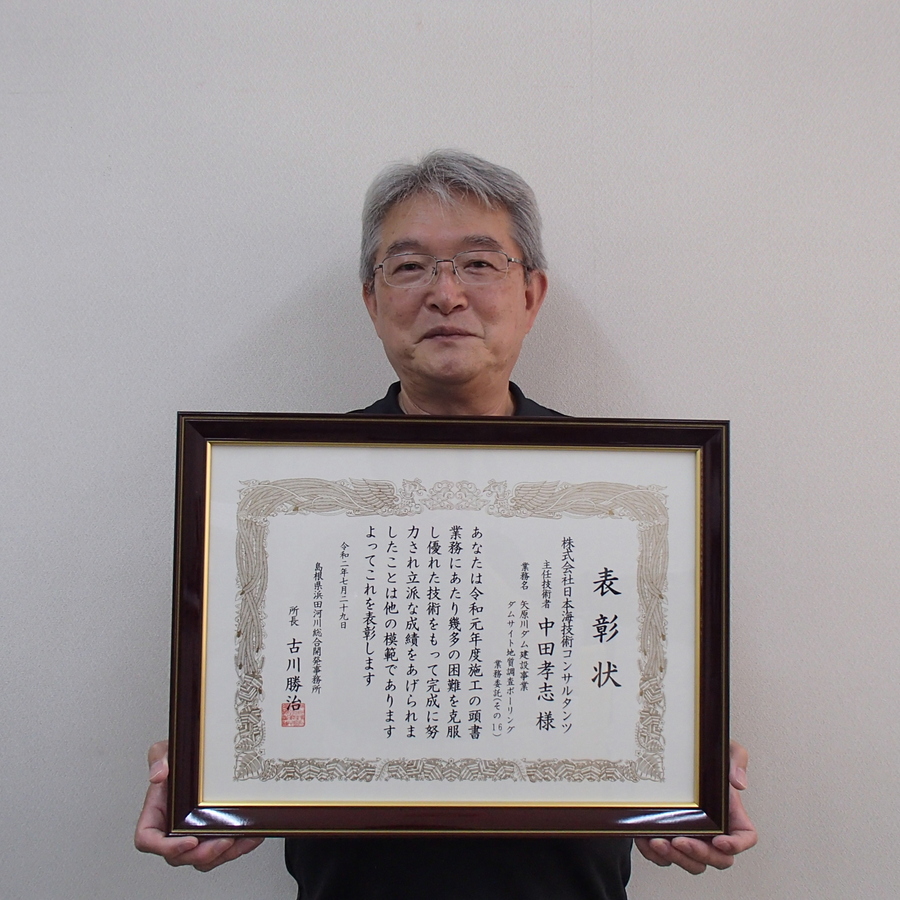 表彰状
株式会社日本海技術コンサルタンツ
主任技術者 中田孝志 様
業務名 矢原川ダム建設事業
ダムサイト地質調査ボーリング
業務委託(その16)
あなたは令和元年度施工の頭書
業務にあたり幾多の困難を克服
し優れた技術をもって完成に努
力され立派な成績をあげられま
したことは他の模範であります
よってこれを表彰します
令和二年七月二十九日
島根県浜田河川総合開発事務所
所長 古川勝治